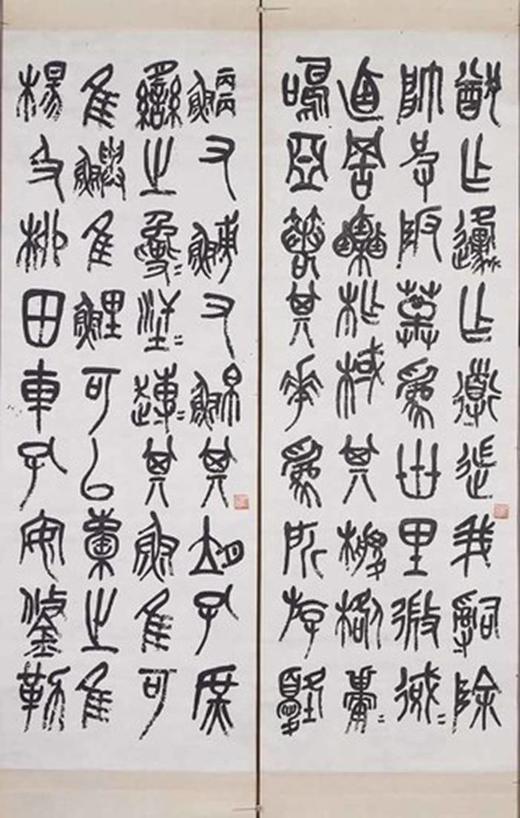 猷乍邍乍導遄我嗣除
帥皮阪草為卅里微徲=
卣罟栗柞棫其椶楛庸=
鳴亞箬其華為所斿盩
鯾又鰟又鮊其孔庶
臠之毚=趩=其魚隹可
隹鱮隹鯉可以橐之隹
楊及柳田車孔安鋚勒